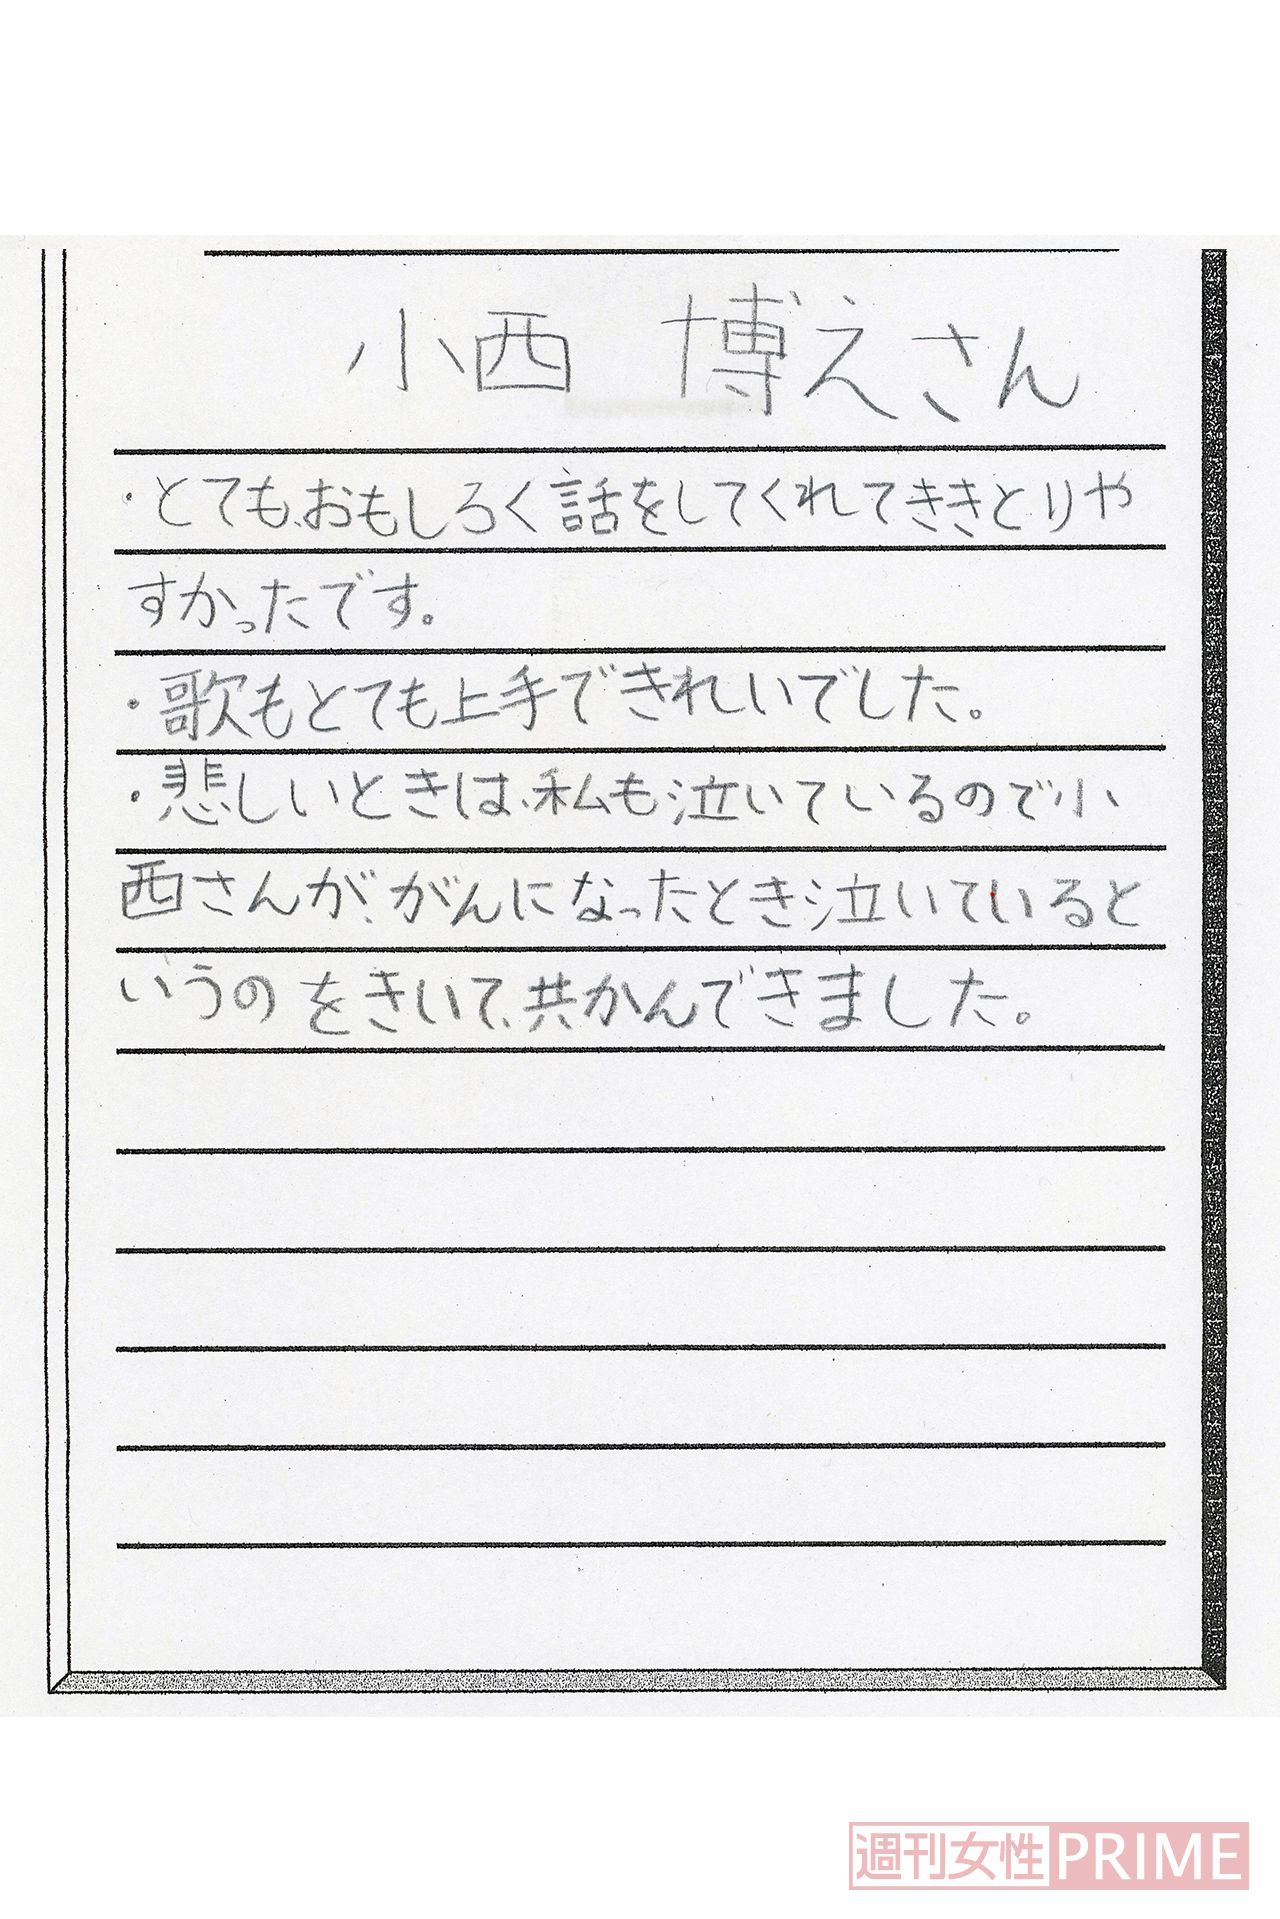 小西 博之さん
・とても、おもしろく話をしてくれてききとりや
すかったです。
・歌もとても上手できれいでした。
・悲しいときは、私も泣いているので小
西さんが、がんになったとき泣いていると
いうのをきいて、共かんできました。
週刊女性PRIME